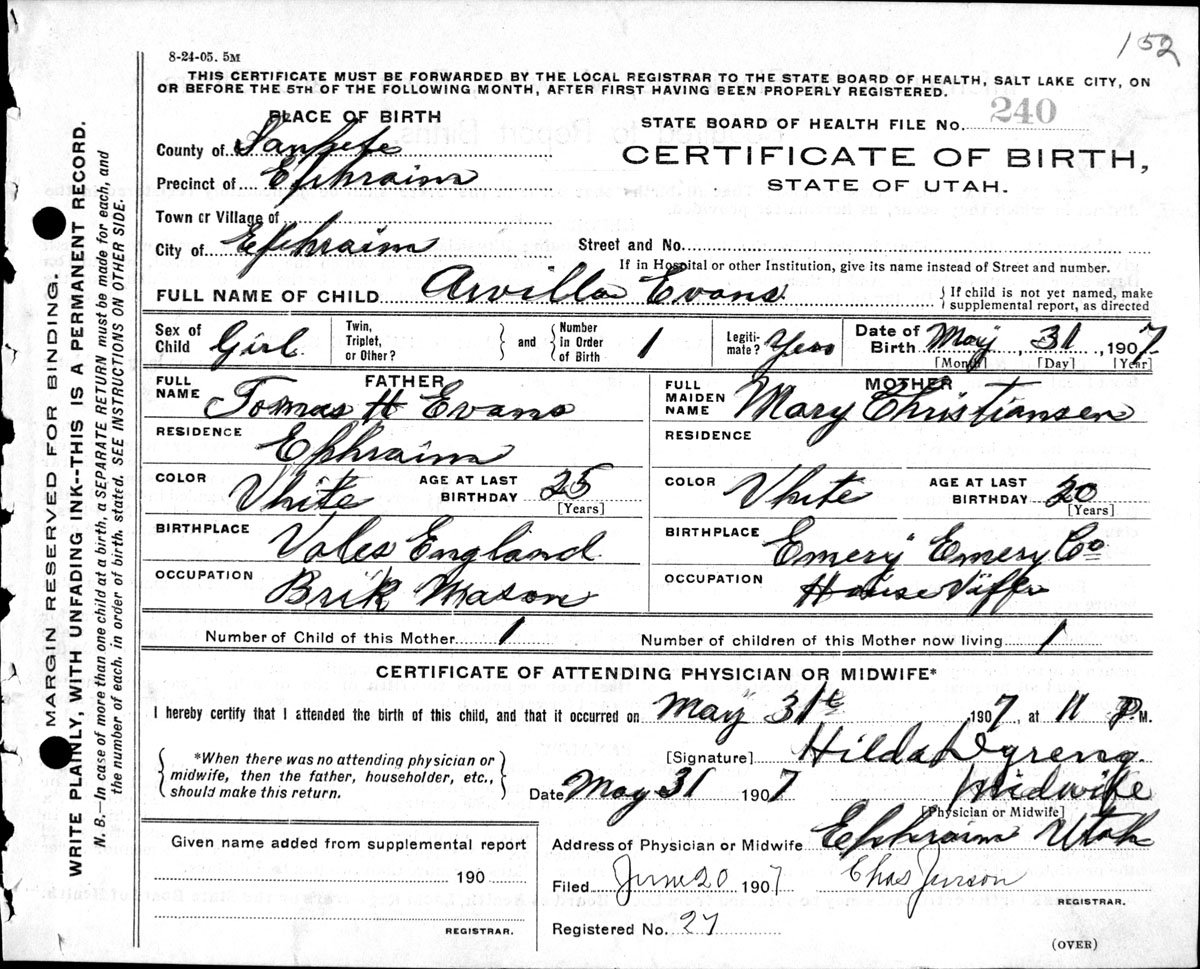 152
8-24-05. 5M
THIS CERTIFICATE MUST BE FORWARDED BY THE LOCAL REGISTRAR TO THE STATE BOARD OF HEALTH, SALT LAKE CITY, ON
OR BEFORE THE 5TH OF THE FOLLOWING MONTH, AFTER FIRST HAVING BEEN PROPERLY REGISTERED.
PLACE OF BIRTH
STATE BOARD OF HEALTH FILE No. 240
County of Sanpete
CERTIFICATE OF BIRTH,
Precinct of Ephraim
STATE OF UTAH.
Town or Village of
City of Ephraim
Street and No.
If in Hospital or other Institution, give its name instead of Street and number.
FULL NAME OF CHILD Arvilla Evans
{ If child is not yet named, make
supplemental report, as directed
Sex of Child Girl
Twin, Triplet, or Other? } and { Number in Order of Birth 1
Legitimate? Yeas
Date of Birth May, 31, 1907
[Month] [Day] [Year]
FATHER
FULL NAME Tomas H Evans
RESIDENCE Ephraim
COLOR Vhite
AGE AT LAST BIRTHDAY 25
[Years]
BIRTHPLACE Vales England
OCCUPATION Brik Mason
MOTHER
FULL MAIDEN NAME Mary Christiansen
RESIDENCE
COLOR Vhite
AGE AT LAST BIRTHDAY 20
[Years]
BIRTHPLACE Emery Emery Co
OCCUPATION House Viffe
Number of Child of this Mother 1
Number of children of this Mother now living 1
CERTIFICATE OF ATTENDING PHYSICIAN OR MIDWIFE*
I hereby certify that I attended the birth of this child, and that it occurred on May 31t 1907, at 11 P.M.
{ *When there was no attending physician or
midwife, then the father, householder, etc.,
should make this return. }
[Signature] Hilda Dyreng
Date May 31 1907
Midwife
[Physician or Midwife]
Given name added from supplemental report
190
REGISTRAR.
Address of Physician or Midwife Ephraim Utah
Filed June 20 1907
Chas Jenson
REGISTRAR.
Registered No. 27
(OVER)
MARGIN RESERVED FOR BINDING.
WRITE PLAINLY, WITH UNFADING INK--THIS IS A PERMANENT RECORD.
N. B.—In case of more than one child at a birth, a SEPARATE RETURN must be made for each, and
the number of each, in order of birth, stated. SEE INSTRUCTIONS ON OTHER SIDE.